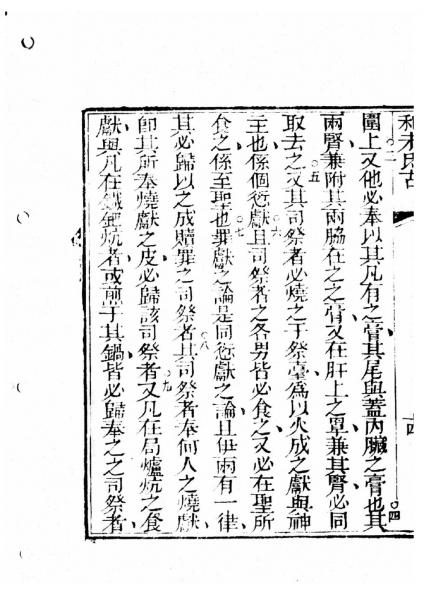 利未氏古
十四
圍上又他必奉以其凡有之膏其尾與蓋內臟之膏也其○四
兩腎兼附其兩脇在之之膏又在肝上之罩兼其腎必同
取去之○五又其司祭者必燒之于祭臺為以火成之獻與神
主也係個愆獻○六且司祭者之各男皆必食之又必在聖所
食之係至聖也○七罪獻之論是同愆獻之論且伊兩有一律
其必歸以之成贖罪之司祭者○八其司祭者奉何人之燒獻
即其所奉燒獻之皮必歸該司祭者○九又凡在局爐炕之食
獻與凡在鐵鈀炕者或煎于其鍋皆必歸奉之之司祭者